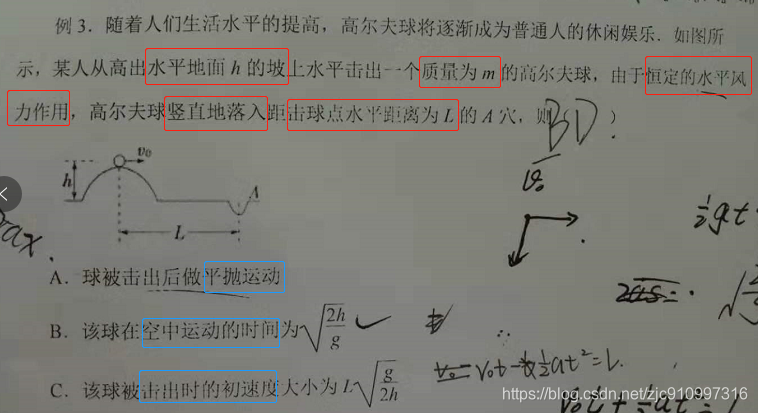 例 3. 随着人们生活水平的提高，高尔夫球将逐渐成为普通人的休闲娱乐. 如图所
示，某人从高出水平地面 h 的坡上水平击出一个质量为 m 的高尔夫球，由于恒定的水平风
力作用，高尔夫球竖直地落入距击球点水平距离为 L 的 A 穴，则 BD )
v₀
h
A
L
v₀
½gt
ax.
A. 球被击出后做平抛运动
B. 该球在空中运动的时间为√(2h/g)
C. 该球被击出时的初速度大小为 L√(g/2h)
∴
v₀t - ½at² = L.
https://blog.csdn.net/zjc910997316